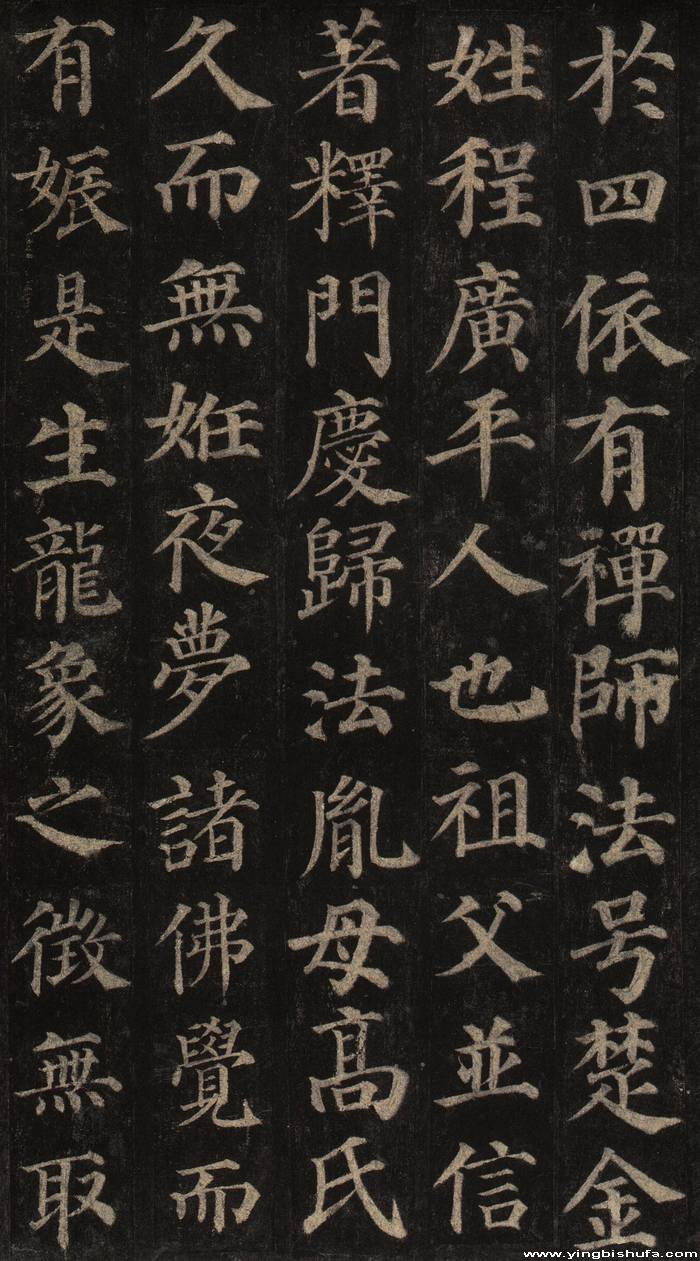 於四依有禪師法号楚金
姓程廣平人也祖父並信
著釋門慶歸法胤母高氏
久而無姙夜夢諸佛覺而
有娠是生龍象之徵無取
www.yingbishufa.com